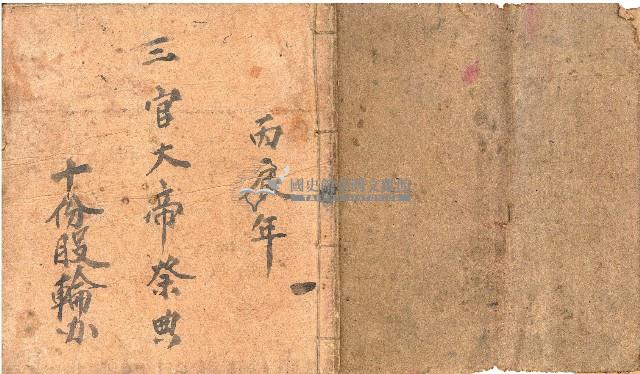 丙辰年
三官大帝祭典
十份股輪办
國史館臺灣文獻館
TAIWAN HISTORICA